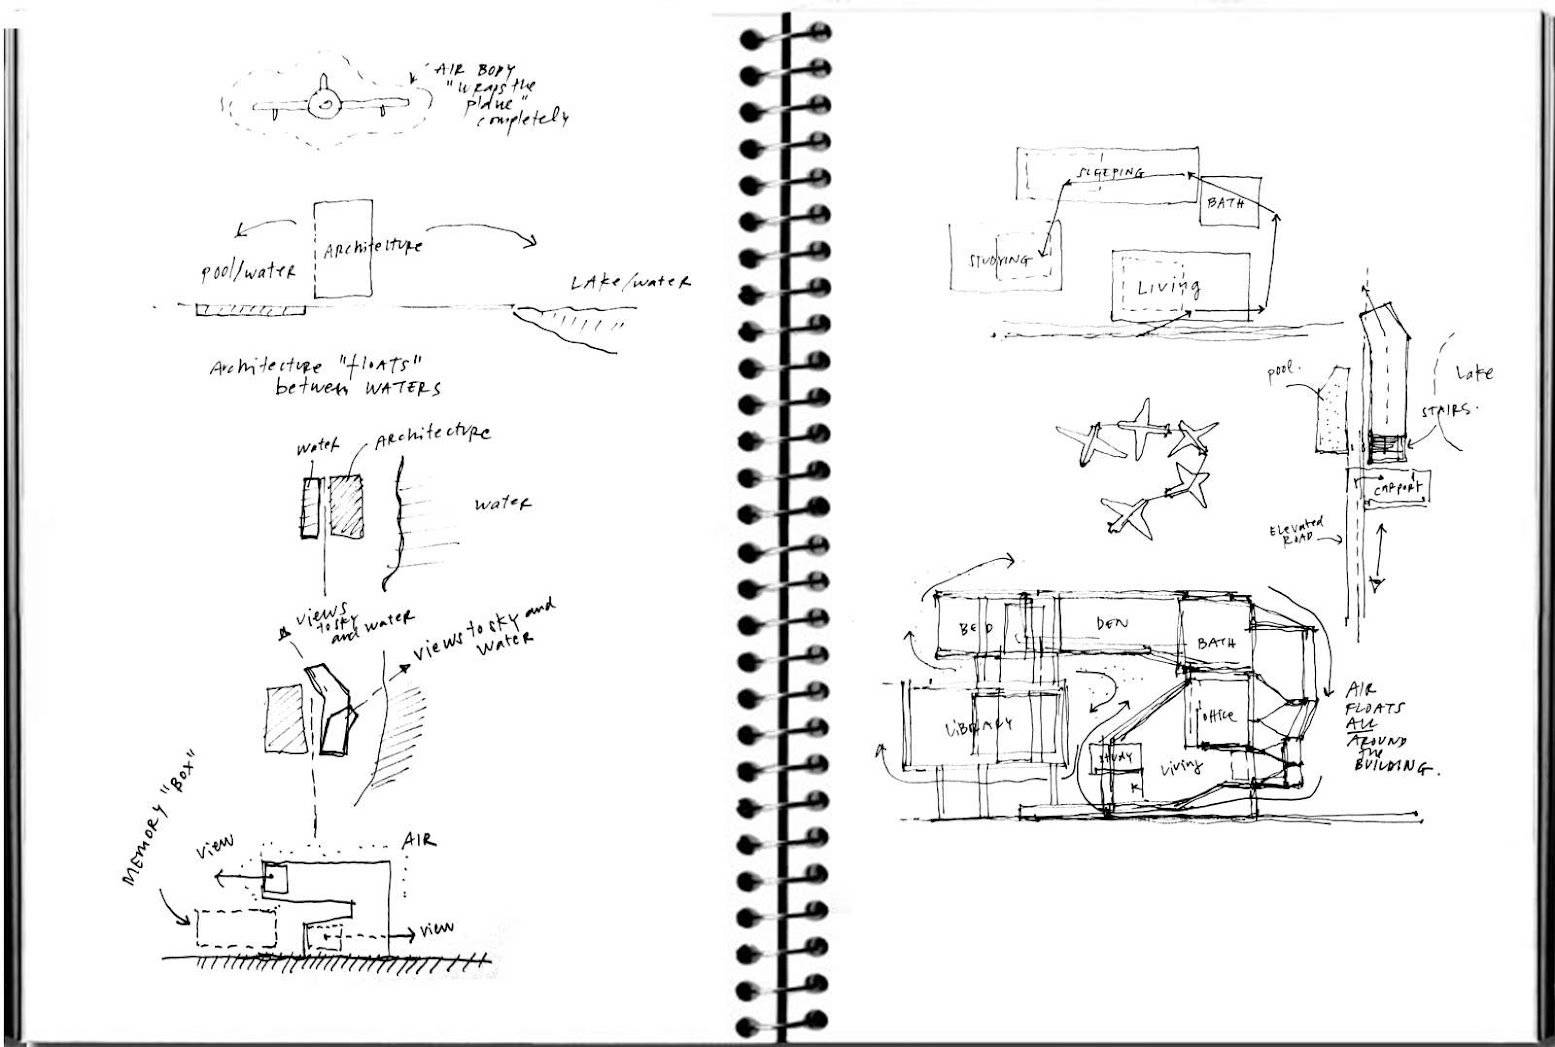 AIR BODY
"WRAPS the
plane"
completely
Architecture
pool/water
LAKe/water
Architecture "flOATS"
between WATERS
water
ARchitecture
water
views
to sky
and water
views to sky and
water
MEMORY "BOX"
view
AIR
view
SLEEPING
BATH
STUDYING
Living
pool.
Lake
STAIRS.
CARPORT
Elevated
ROAD
BED
DEN
BATH
LiBRARY
Office
STUDY
Living
K
AIR
FLOATS
ALL
AROUND
the
BUILDING.